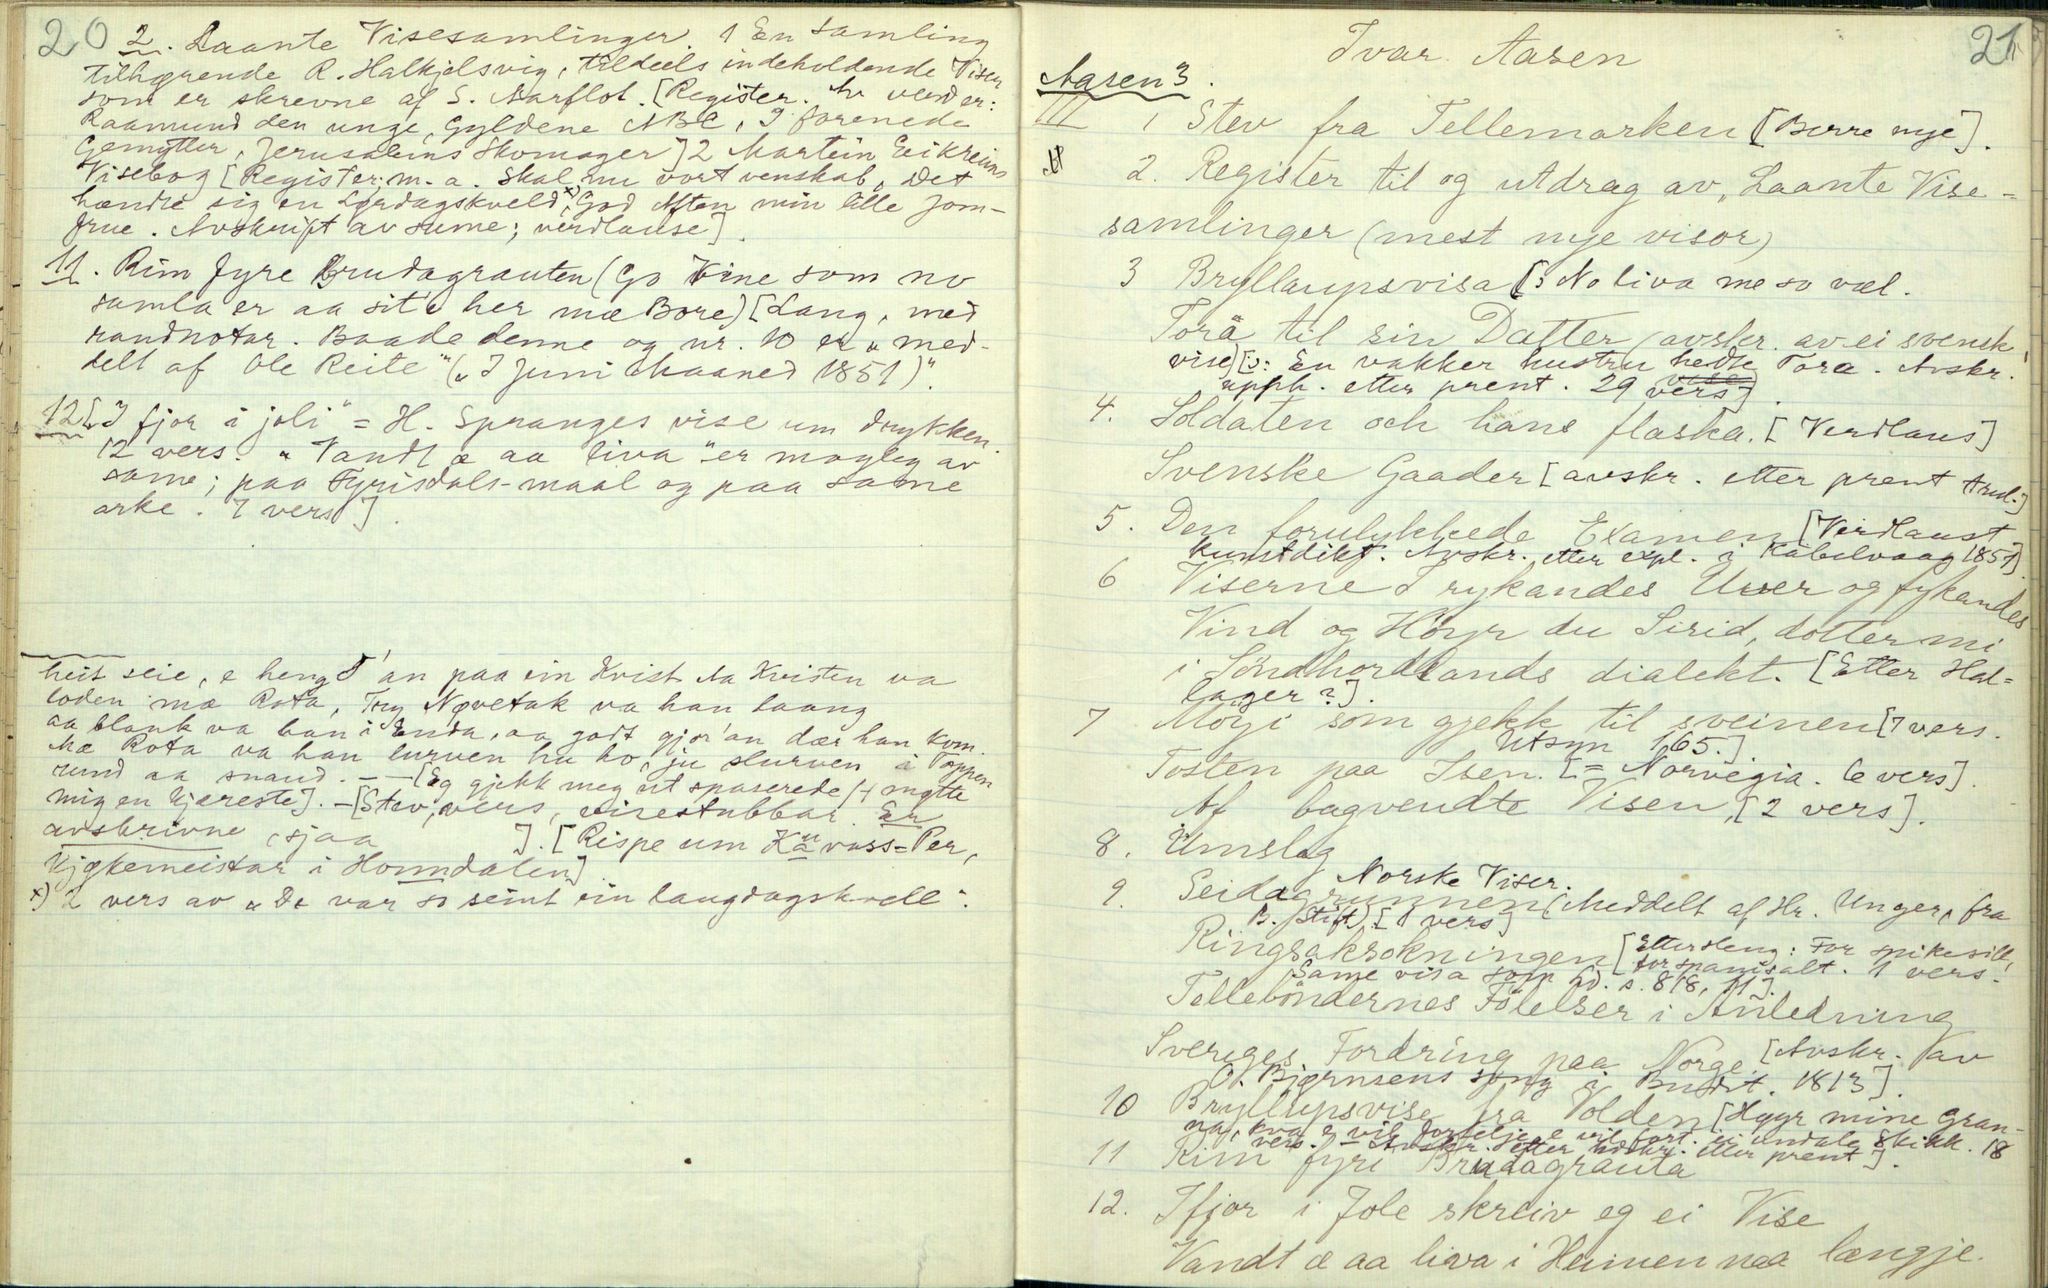 20 2. Laante Visesamlinger. 1 En Samling
tilhørende R. Halkjelsvig, tildeels indeholdende Viser
som er skrevne af S. Aarflot. [Register. Av verd er:
Raamund den unge, Gyldene ABC, I forenede
Gemytter, Jerusalems Skomager] 2 Martin Eikreims
Visebog [Register; m. a. Skal nu vort venskab, Det
hændte sig en Lørdagskveld x), God Aften min lille Jom-
frue. Avskrift av sume; verdlause].
11. Rim fyre Brudagrauten (Go Vine som no
samla er aa sit'e her mæ Bore) [Lang, med
randnotar. Baade denne og nr. 10 er „med-
delt af Ole Reite" („I Juni Maaned 1851)".
12 [„I fjor i joli" = H. Spranges vise um drykken.
12 vers. „Vandt æ aa liva" er mogleg av
same; paa Fyrisdals-maal og paa same
arke. 7 vers].
heit seie, e hengd 'an paa ein Kvist Aa Kvisten va
loden mæ Rota, Try Nøvetak va han laang
aa blank va han i Enda, aa godt gjor'an dær han kom.
Mæ Rota va han lurven hu ho, ju slurven i Toppen
rund aa snaud. — — [Eg gjekk meg ut spaserede / + møtte
mig en Kjæreste]. — [Stev, vers, visestubbar. Er
avskrivne, sjaa ]. [Rispe um Kavass-Per,
Kjøkemeistar i Horndalen]
x) 2 vers av „De var so seint ein laugdagskvell".
21
Ivar Aasen
Aasen 3.
III 1 Stev fra Tellemarken [Berre nye].
2. Register til og utdrag av „Laante Vise-
samlinger (mest nye visor)
3 Bryllaupsvisa [ɔ: No liva me so væl.
Tora til sin Datter (avskr. av ei svensk
vise) [ɔ: En vakker hustru hedte Tora. Avskr.
upph. etter prent. 29 vers].
4. Soldaten och hans flaska. [Verdlaus]
Svenske Gaader [avskr. etter prent]
5. Den forulykkede Examen [Verdlaust
kunstdikt. Avskr. etter expl. i Kabelvaag 1851].
6 Viserne I rykandes Uver og fykandes
Vind og Høyr du Sirid, dotter mi
i Söndhordlands dialekt. [Etter Hal-
lager?].
7 Möyi som gjekk til sveinen [7 vers.
Utsyn 165.]
Tosten paa Isen. [= Norvegia. 6 vers].
Af bagvendte Visen, [2 vers].
8. Umslag
Norske Viser.
9. Seidagrunnen (Meddelt af Hr. Unger, fra
B. Stift). [1 vers]
Ringsaksokningen [Ettersleng: For spikesill,
for spanisalt. 1 vers.
Same visa som Ld. s. 818, 71].
Tellebøndernes Følelser i Anledning
Sveriges Fordring paa Norge [Avskr. av
O. Bjørnsens song i Budst. 1813].
10 Bryllupsvise fra Volden [Høyr mine gran-
na, kva e vil fortelje, e vil fort. ei undale Skikk. 18
vers. — Avskr. etter hdskr. eller prent].
11 Rim fyri Brudagrauta
12. Ifjor i Jole skreiv eg ei Vise
Vandt æ aa liva i Heimen naa længje.